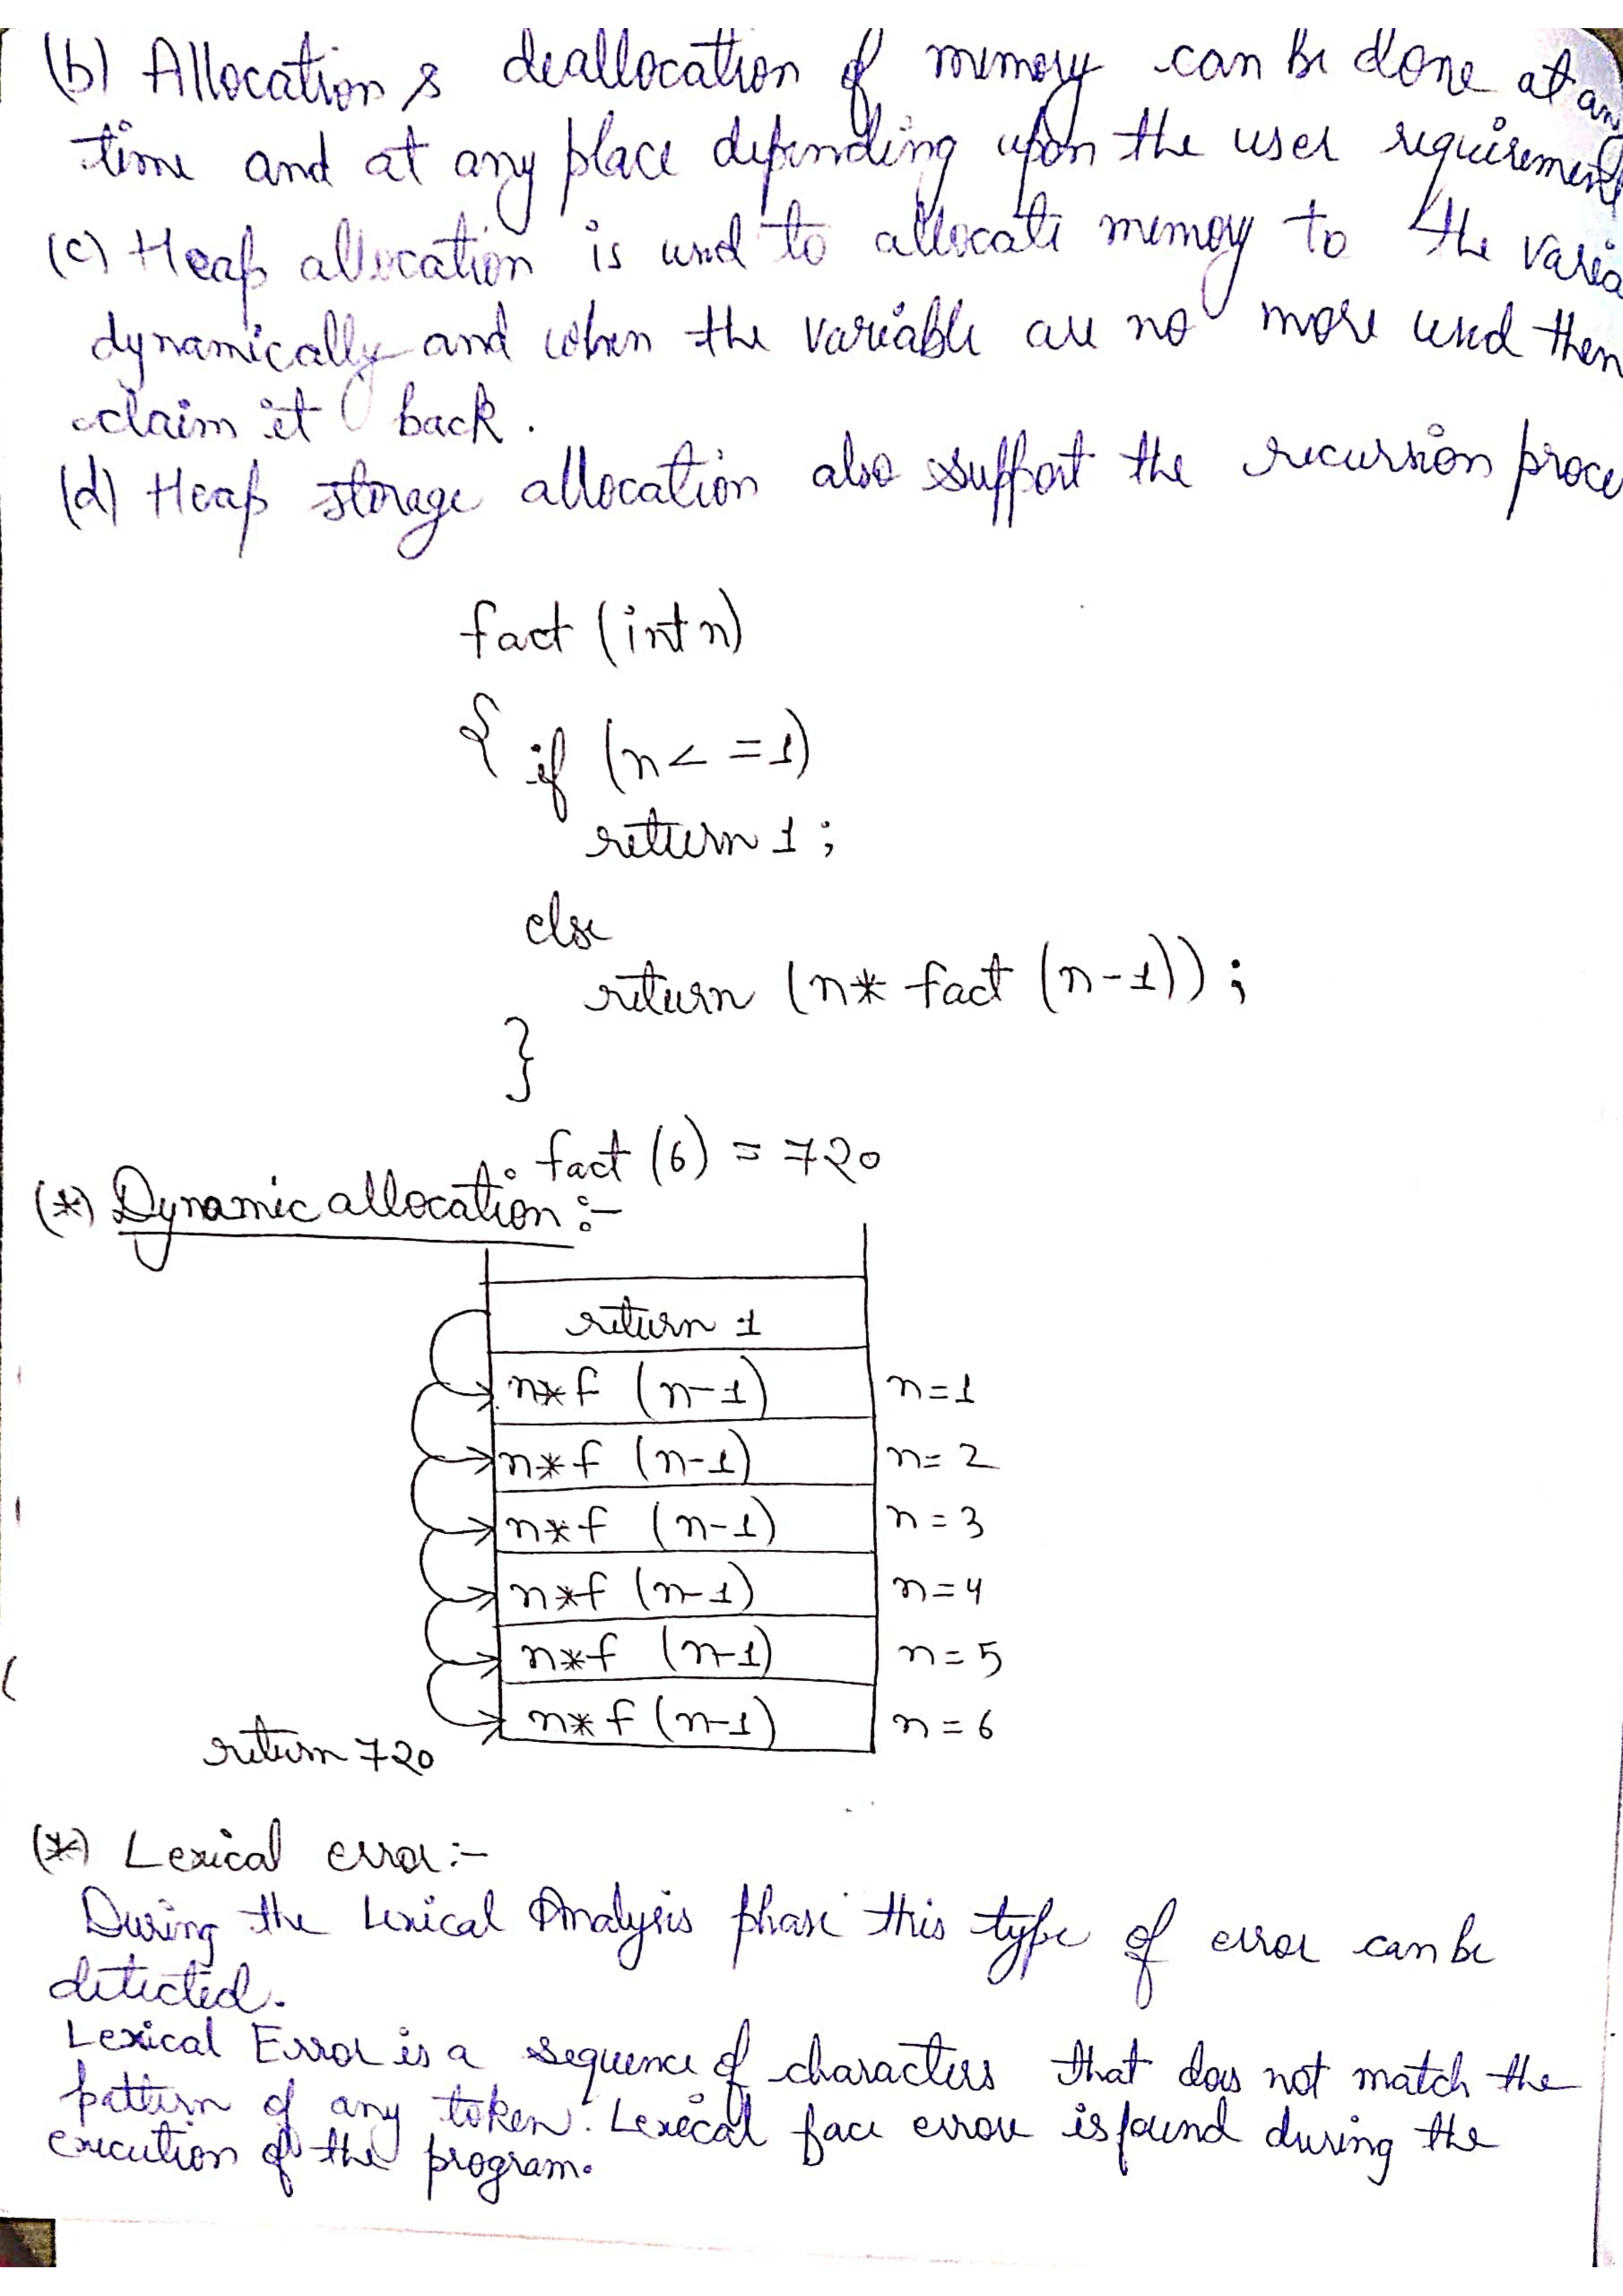 (b) Allocation & deallocation of memory can be done at an
time and at any place depending upon the user requirement
(c) Heap allocation is used to allocate memory to the varia
dynamically and when the variable are no more used then
claim it back.
(d) Heap storage allocation also support the recursion proce
fact (int n)
{ if (n < = 1)
return 1 ;
else
return (n * fact (n-1)) ;
}
fact (6) = 720
(*) Dynamic allocation :-
return 1
n*f (n-1) n=1
n*f (n-1) n=2
n*f (n-1) n=3
n*f (n-1) n=4
n*f (n-1) n=5
n*f (n-1) n=6
return 720
(*) Lexical error :-
During the Lexical Analysis phase this type of error can be
detected.
Lexical Error is a sequence of characters that does not match the
pattern of any token. Lexical face error is found during the
execution of the program.